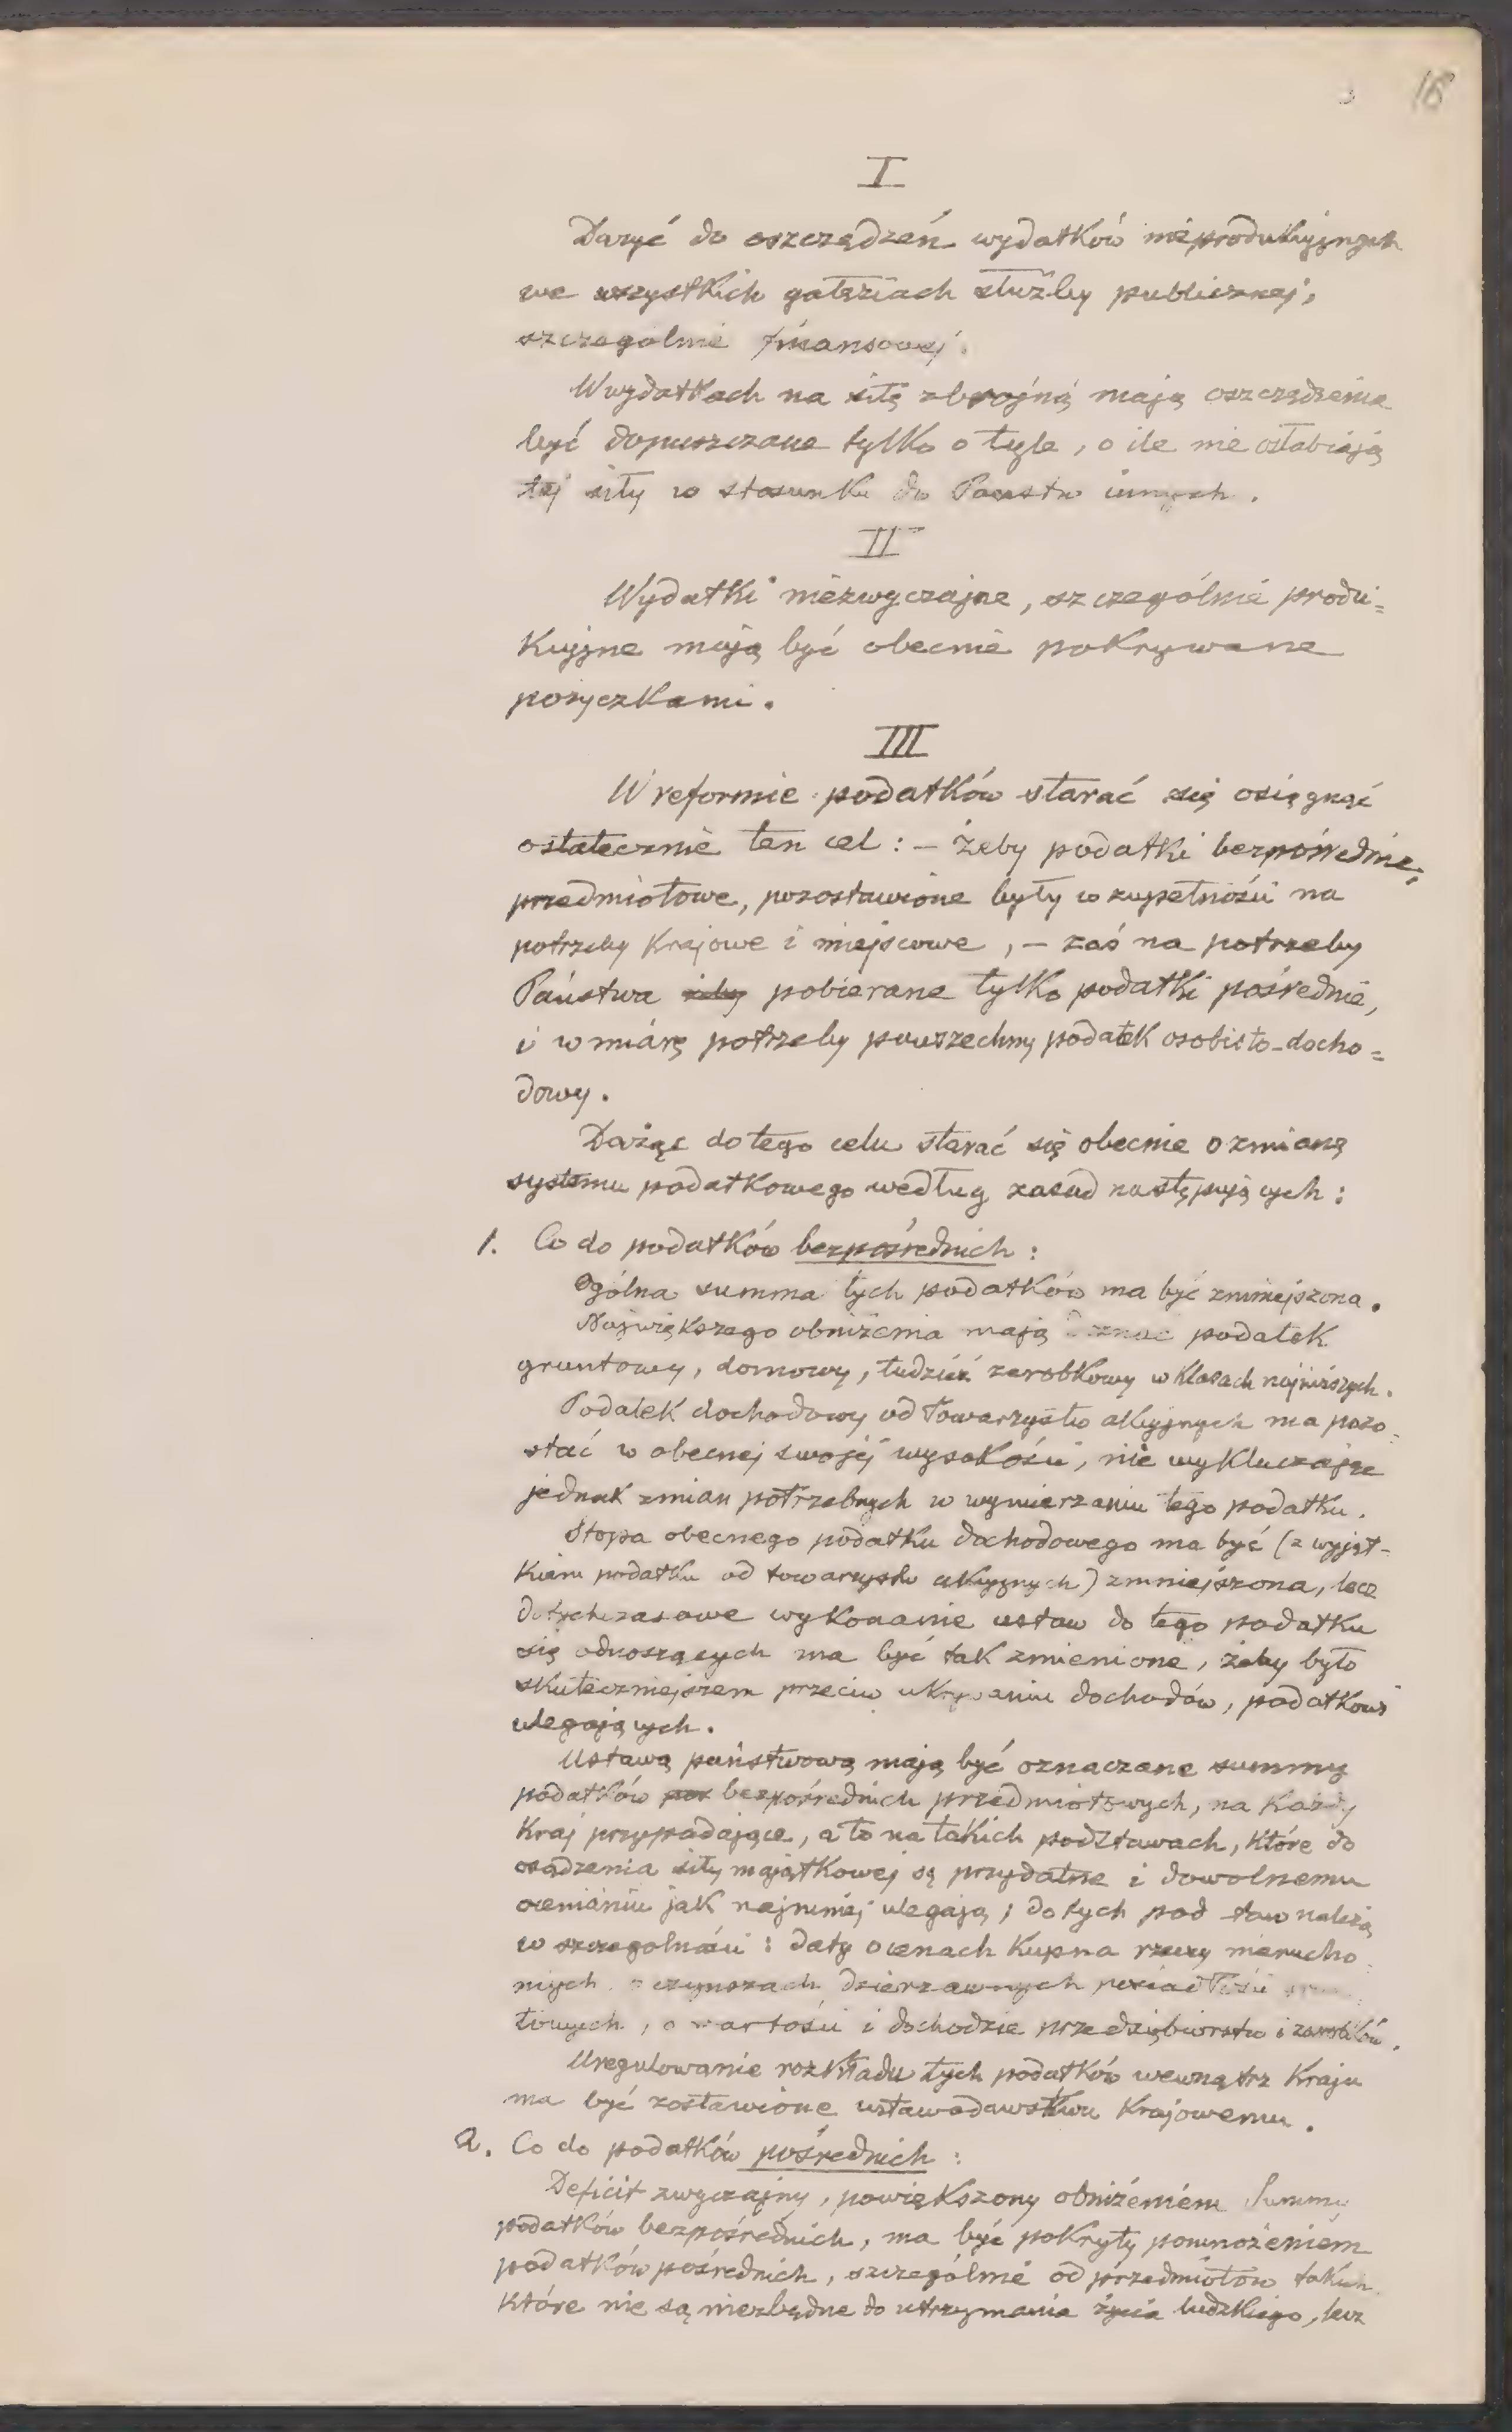 16
I
Dązyć do oszczędzeń wydatków nieprodukcyjnych
we wszystkich gałęziach służby publicznej,
szczególnie finansowej.
W wydatkach na siłę zbrojną mają oszczędzenia
być dopuszczane tylko o tyle, o ile nie osłabiają
tej siły w stosunku do Państw innych.
II
Wydatki niezwyczajne, szczególnie produ=
kcyjne mają być obecnie pokrywane
pożyczkami.
III
W reformie podatków starać się osiągnąć
ostatecznie ten cel: – żeby podatki bezpośrednie,
przedmiotowe, pozostawione były w zupełności na
potrzeby krajowe i miejscowe, – zaś na potrzeby
Państwa żeby pobierane tylko podatki pośrednie,
i w miarę potrzeby powszechny podatek osobisto-docho=
dowy.
Dążąc do tego celu starać się obecnie o zmianę
systemu podatkowego według zasad następujących:
1. Co do podatków bezpośrednich:
Ogólna summa tych podatków ma być zmniejszona.
Największego obniżenia mają doznać podatek
gruntowy, domowy, tudzież zarobkowy w klasach najniższych.
Podatek dochodowy od towarzystw akcyjnych ma pozo=
stać w obecnej swojej wysokości, nie wykluczając
jednak zmian potrzebnych w wymierzaniu tego podatku.
Stopa obecnego podatku dochodowego ma być (z wyjąt-
kiem podatku od towarzystw akcyjnych) zmniejszona, lecz
dotychczasowe wykonanie ustaw do tego podatku
się odnoszących ma być tak zmienione, żeby było
skuteczniejszem przeciw ukrywaniu dochodów, podatkowi
ulegających.
Ustawą państwową mają być oznaczane summy
podatków bezpośrednich przedmiotowych, na każdy
Kraj przypadające, a to na takich podstawach, które do
osądzenia siły majątkowej są przydatne i dowolnemu
ocenianiu jak najmniej ulegają; do tych podstaw należą
w szczególności: daty o cenach kupna rzeczy nierucho=
mych, o czynszach dzierżawnych posiadłości
towych, o wartości i dochodzie przedsiębiorstw i zarobków.
Uregulowanie rozkładu tych podatków wewnątrz Kraju
ma być zostawione ustawodawstwu Krajowemu.
2. Co do podatków pośrednich:
Deficit zwyczajny, powiększony obniżeniem Summy
podatków bezpośrednich, ma być pokryty pomnożeniem
podatków pośrednich, szczególnie od przedmiotów takich
które nie są niezbędne do utrzymania życia ludzkiego, lecz